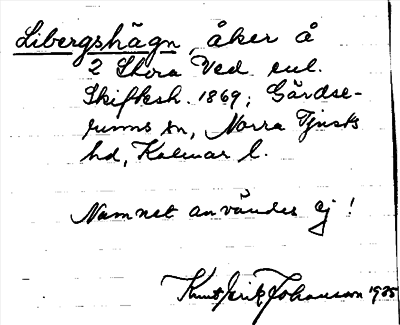 Libergshägn, åker å
2 Stora Ved enl.
Skifteh. 1869; Gärdse-
rums sn, Norra Tjusts
hd, Kalmar l.
Namnet användes ej!
Knut Erik Johansson 1935